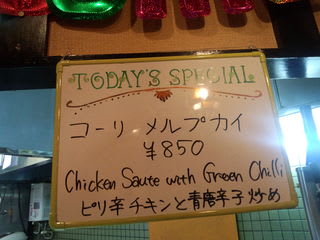 TODAY'S SPECIAL
コーリ メルプカイ
¥850
Chicken Saute with Green Chilli
ピリ辛チキンと青唐辛子炒め